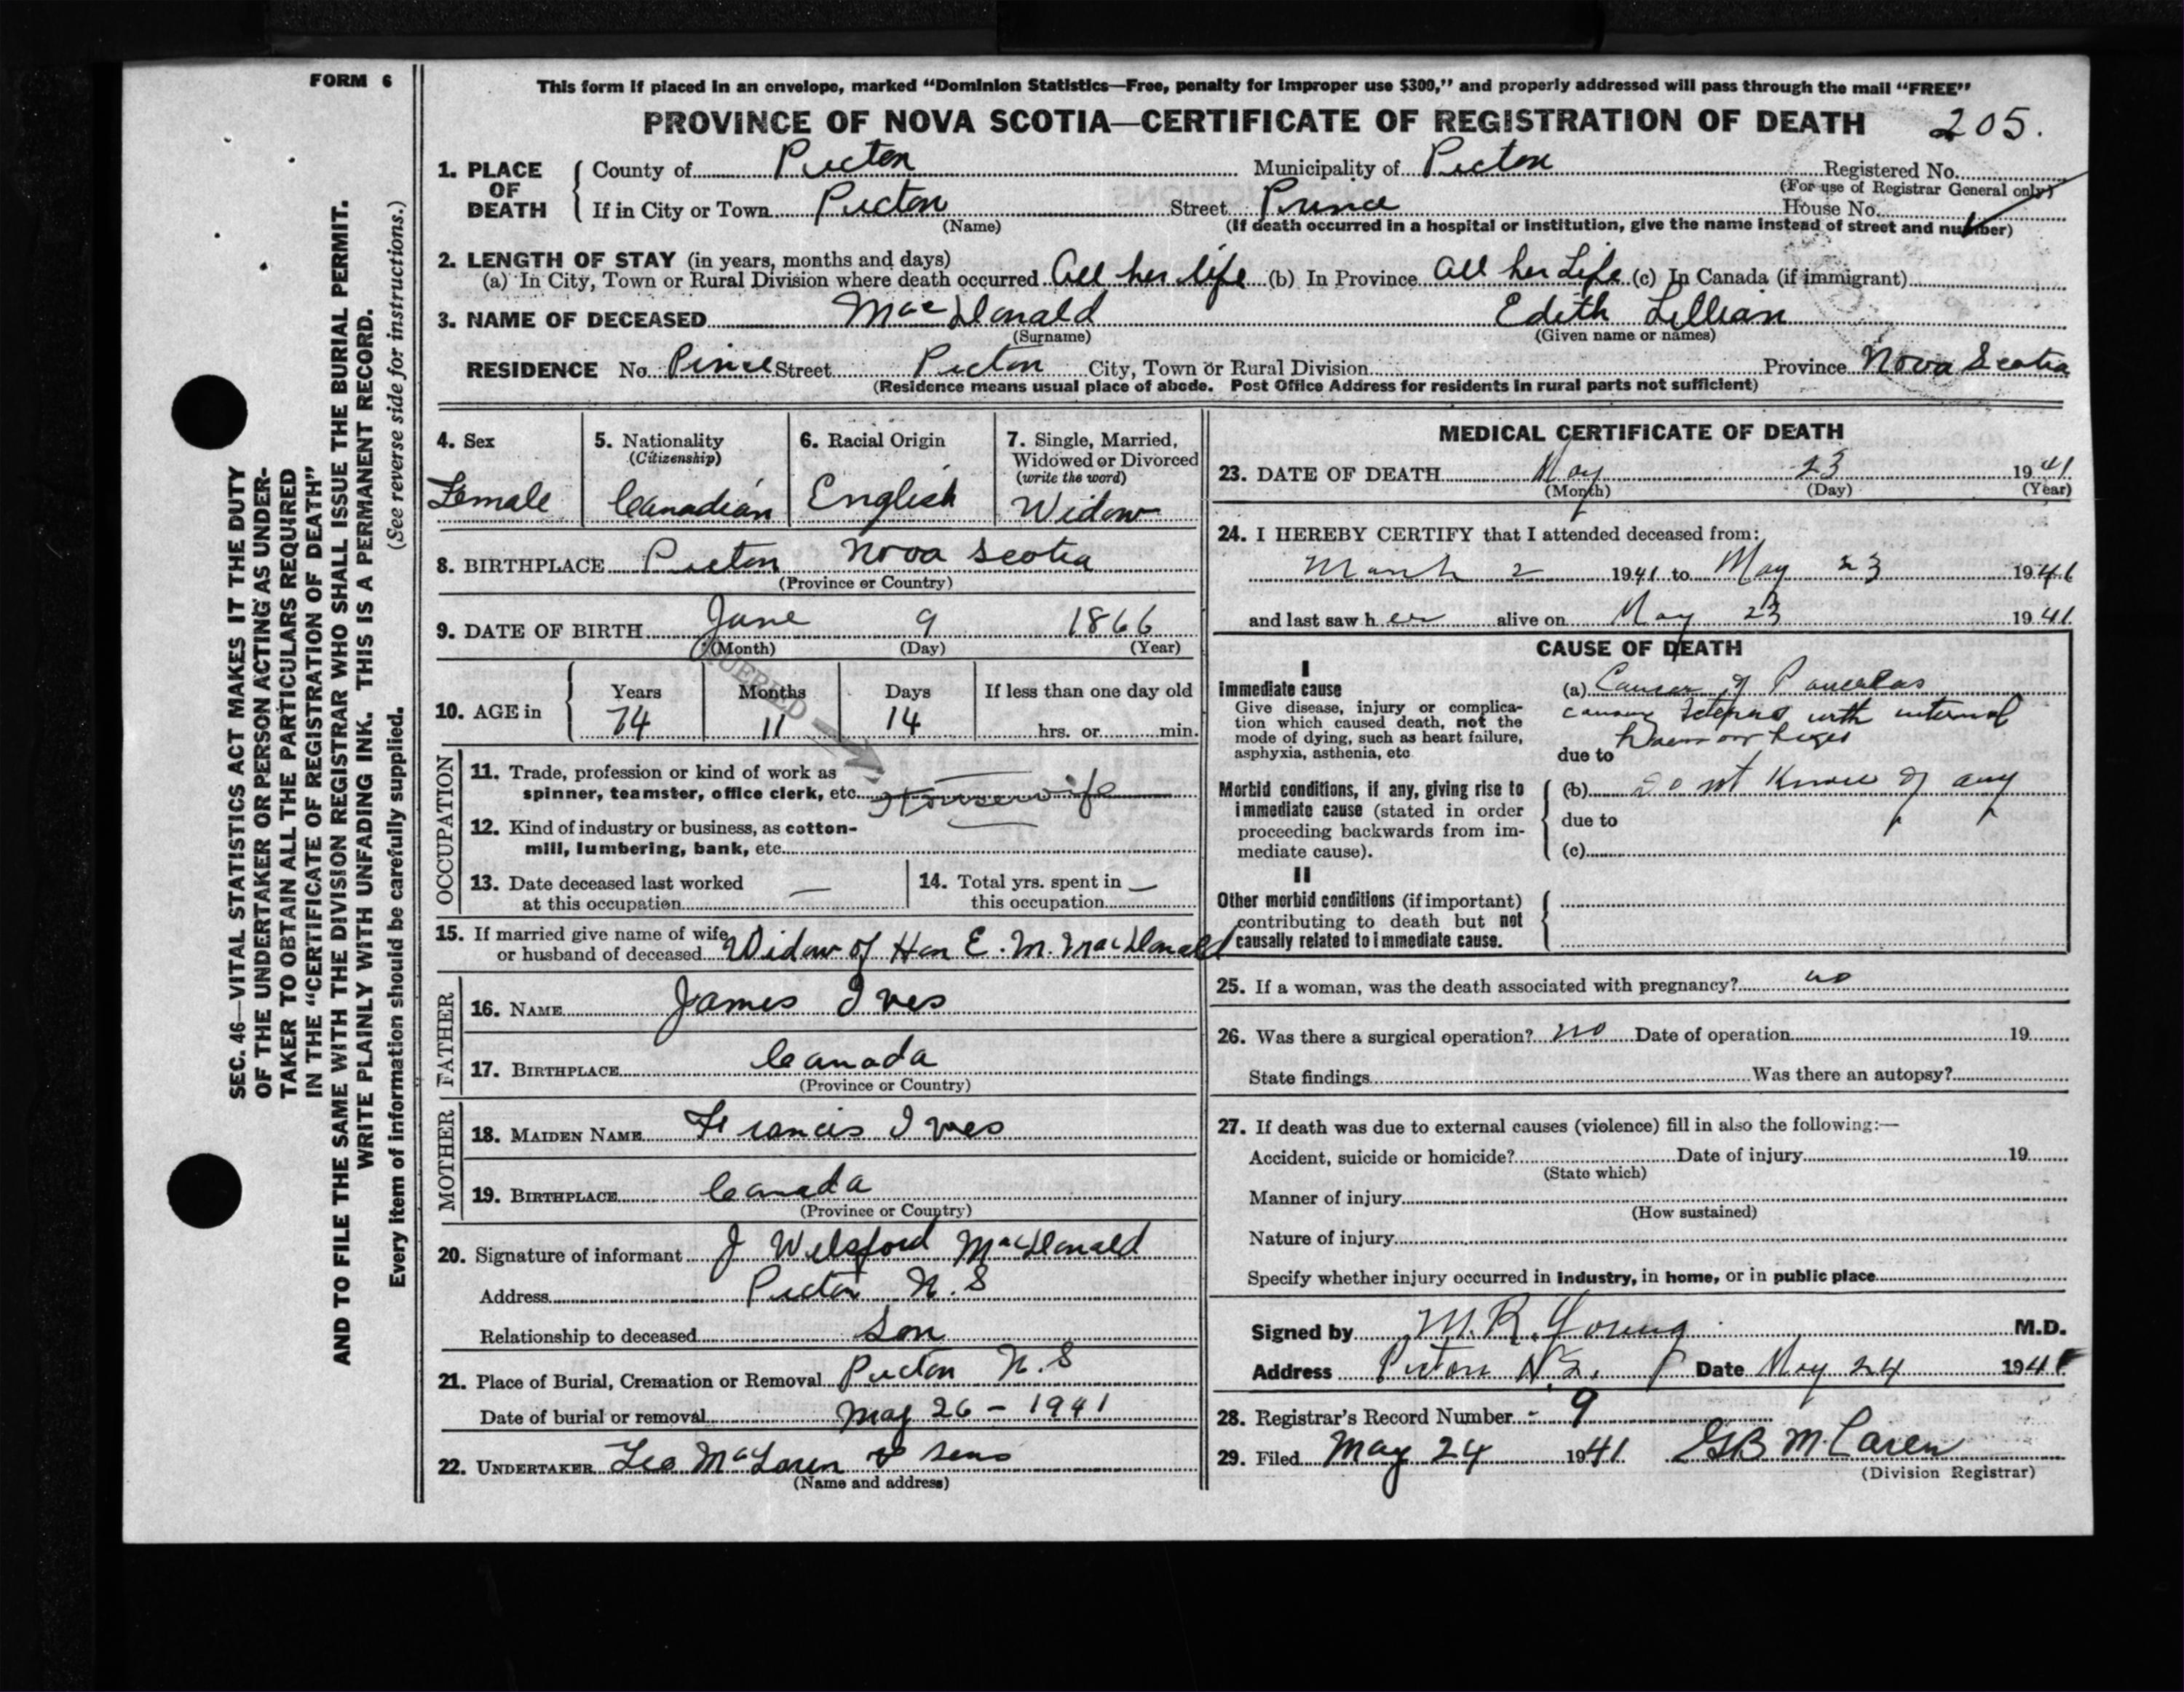 FORM 6
This form if placed in an envelope, marked "Dominion Statistics—Free, penalty for improper use $300," and properly addressed will pass through the mail "FREE"
PROVINCE OF NOVA SCOTIA—CERTIFICATE OF REGISTRATION OF DEATH 205.
1. PLACE OF DEATH County of Pictou Municipality of Pictou Registered No.
(For use of Registrar General only)
If in City or Town Pictou Street Prince House No.
(Name) (If death occurred in a hospital or institution, give the name instead of street and number)
2. LENGTH OF STAY (in years, months and days)
(a) In City, Town or Rural Division where death occurred All her life (b) In Province All her Life (c) In Canada (if immigrant)
3. NAME OF DECEASED MacDonald Edith Lillian
(Surname) (Given name or names)
RESIDENCE No. Prince Street Pictou City, Town or Rural Division Province Nova Scotia
(Residence means usual place of abode. Post Office Address for residents in rural parts not sufficient)
4. Sex
Female
5. Nationality
(Citizenship)
Canadian
6. Racial Origin
English
7. Single, Married,
Widowed or Divorced
(write the word)
Widow
8. BIRTHPLACE Pictou Nova Scotia
(Province or Country)
9. DATE OF BIRTH June 9 1866
(Month) (Day) (Year)
QUERIED
10. AGE in Years Months Days If less than one day old
74 11 14 hrs. or min.
OCCUPATION
11. Trade, profession or kind of work as
spinner, teamster, office clerk, etc. Housewife
12. Kind of industry or business, as cotton-
mill, lumbering, bank, etc.
13. Date deceased last worked
at this occupation —
14. Total yrs. spent in
this occupation —
15. If married give name of wife
or husband of deceased Widow of Hon E. M. MacDonald
FATHER
16. NAME James Ives
17. BIRTHPLACE Canada
(Province or Country)
MOTHER
18. MAIDEN NAME Francis Ives
19. BIRTHPLACE Canada
(Province or Country)
20. Signature of informant J Welsford MacDonald
Address Pictou N.S
Relationship to deceased Son
21. Place of Burial, Cremation or Removal Pictou N.S
Date of burial or removal May 26 - 1941
22. UNDERTAKER Geo McLaren & Sons
(Name and address)
MEDICAL CERTIFICATE OF DEATH
23. DATE OF DEATH May 23 1941
(Month) (Day) (Year)
24. I HEREBY CERTIFY that I attended deceased from:
March 2 1941 to May 23 1941
and last saw her alive on May 23 1941
CAUSE OF DEATH
I
Immediate cause
Give disease, injury or complica-
tion which caused death, not the
mode of dying, such as heart failure,
asphyxia, asthenia, etc
(a) Cancer of Pancreas
causing Icterus with internal
haemorrhages
due to
Morbid conditions, if any, giving rise to
immediate cause (stated in order
proceeding backwards from im-
mediate cause).
(b) Do not know of any
due to
(c)
II
Other morbid conditions (if important)
contributing to death but not
causally related to immediate cause.
25. If a woman, was the death associated with pregnancy? no
26. Was there a surgical operation? no Date of operation 19
State findings Was there an autopsy?
27. If death was due to external causes (violence) fill in also the following:—
Accident, suicide or homicide? Date of injury 19
(State which)
Manner of injury
(How sustained)
Nature of injury
Specify whether injury occurred in industry, in home, or in public place
Signed by M. R. Young M.D.
Address Pictou N.S. Date May 24 1941
28. Registrar's Record Number - 9
29. Filed May 24 1941. GB McLaren
(Division Registrar)
SEC. 46—VITAL STATISTICS ACT MAKES IT THE DUTY
OF THE UNDERTAKER OR PERSON ACTING AS UNDER-
TAKER TO OBTAIN ALL THE PARTICULARS REQUIRED
IN THE "CERTIFICATE OF REGISTRATION OF DEATH"
AND TO FILE THE SAME WITH THE DIVISION REGISTRAR WHO SHALL ISSUE THE BURIAL PERMIT.
WRITE PLAINLY WITH UNFADING INK. THIS IS A PERMANENT RECORD.
Every item of information should be carefully supplied. (See reverse side for instructions.)